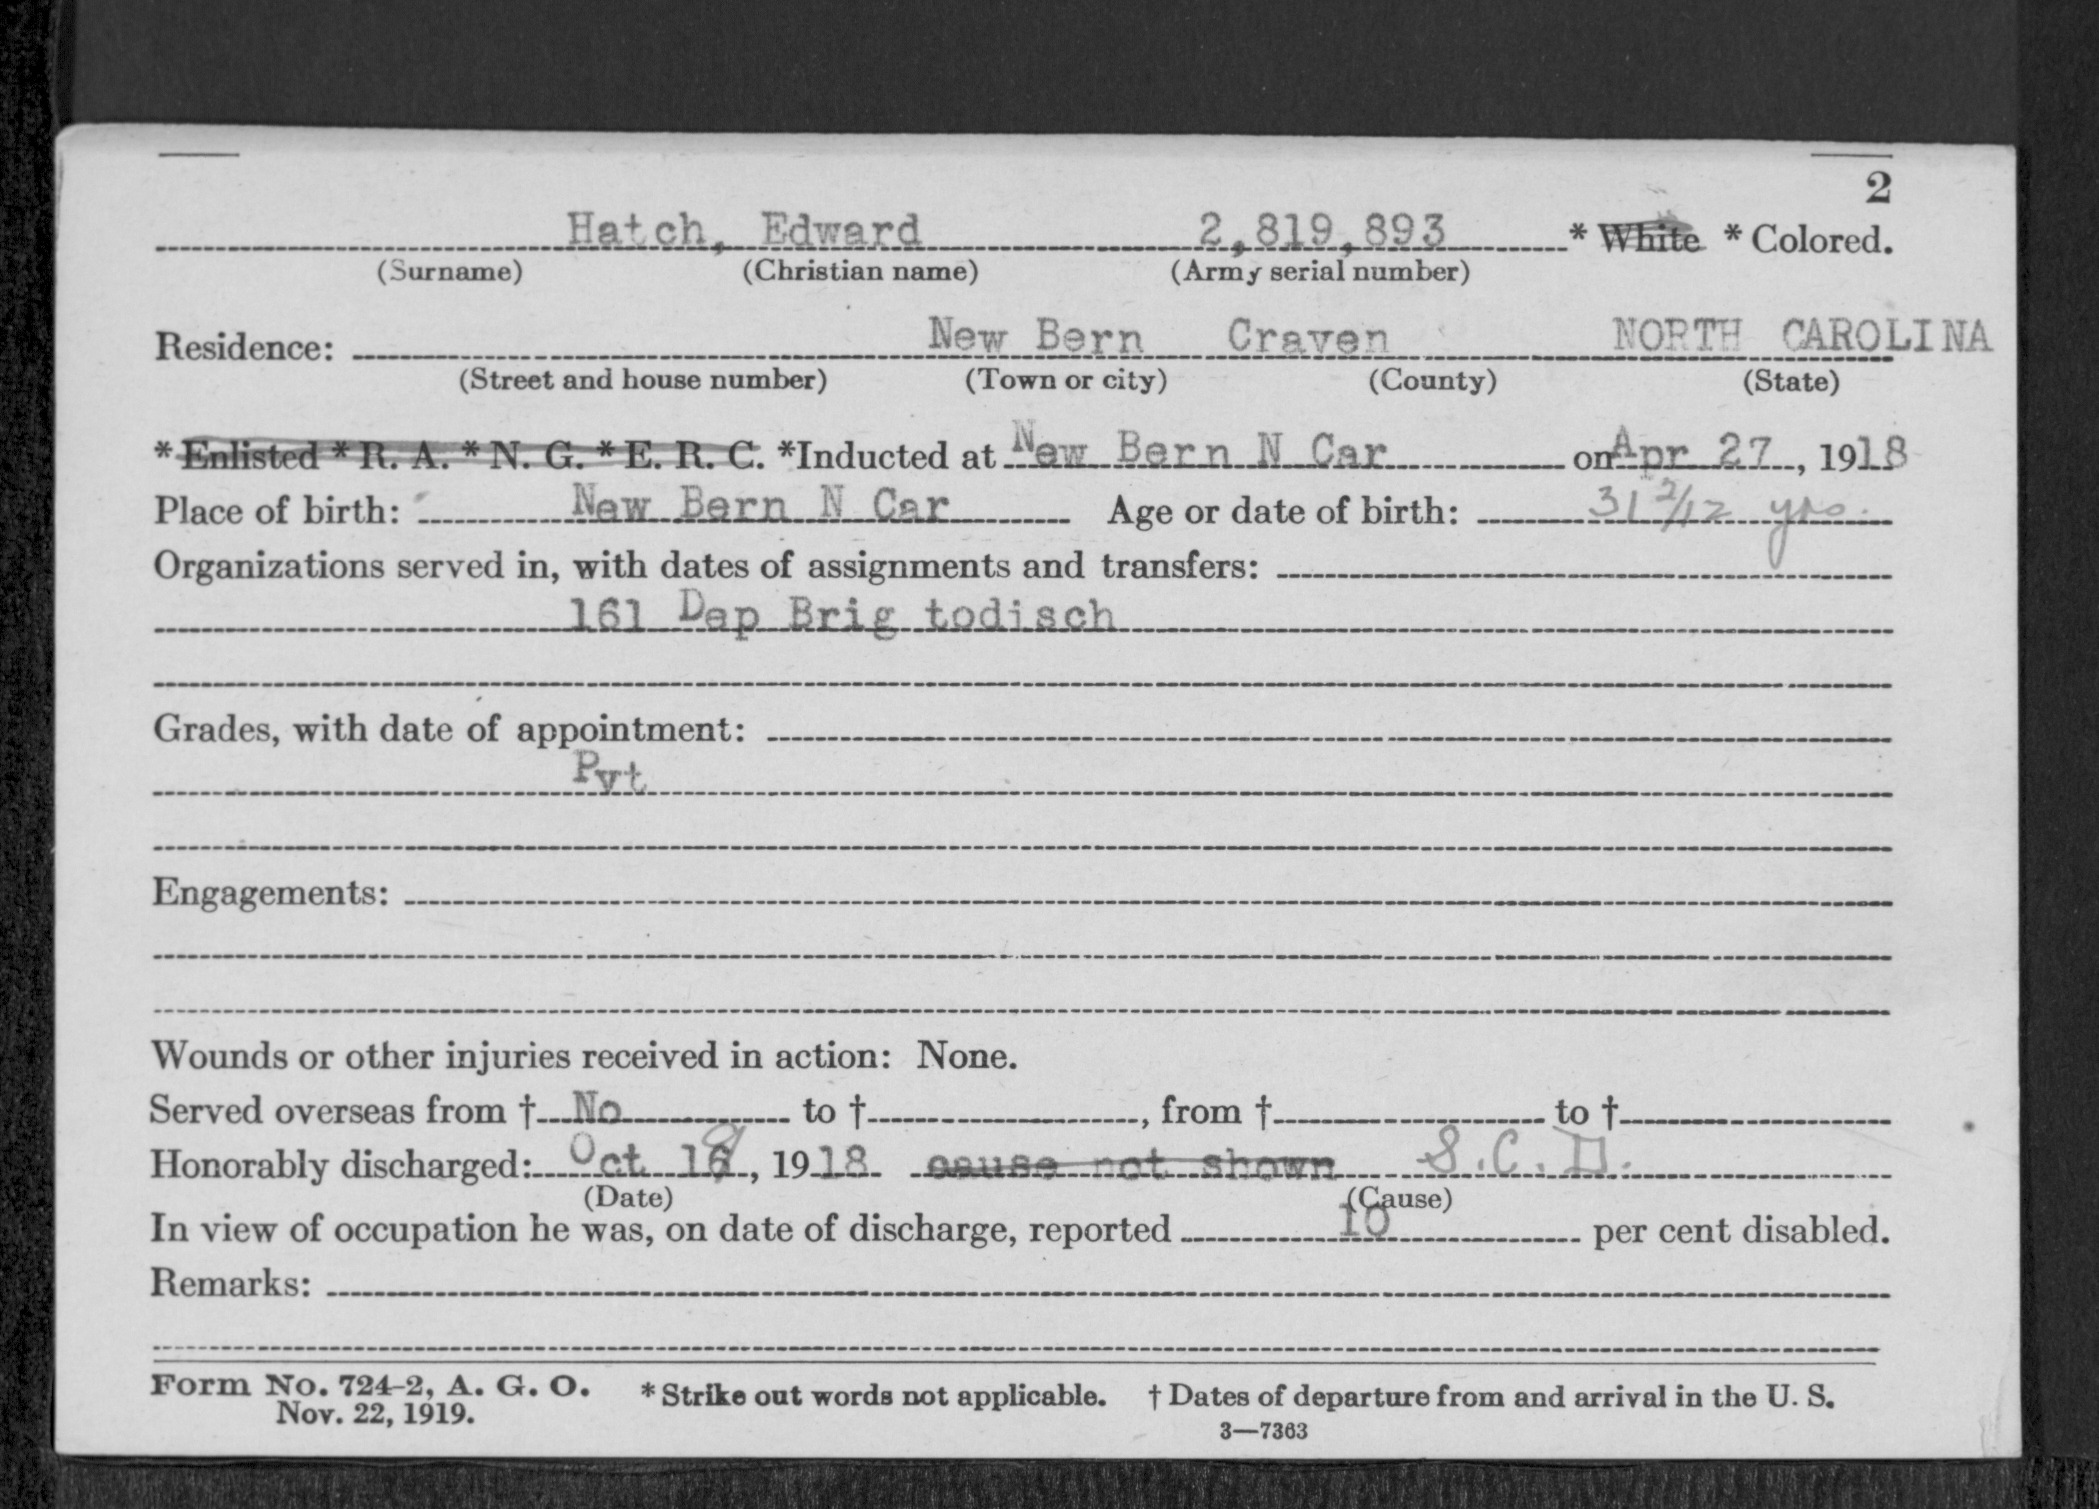 2
Hatch, Edward 2,819,893 * White * Colored.
(Surname) (Christian name) (Army serial number)
Residence: New Bern Craven NORTH CAROLINA
(Street and house number) (Town or city) (County) (State)
* Enlisted * R. A. * N. G. * E. R. C. *Inducted at New Bern N Car on Apr 27, 1918
Place of birth: New Bern N Car Age or date of birth: 31 2/12 yrs.
Organizations served in, with dates of assignments and transfers:
161 Dep Brig todisch
Grades, with date of appointment:
Pvt
Engagements:
Wounds or other injuries received in action: None.
Served overseas from † No to †, from † to †
Honorably discharged: Oct 18, 1918 cause not shown S.C.D.
(Date) (Cause)
In view of occupation he was, on date of discharge, reported 10 per cent disabled.
Remarks:
Form No. 724-2, A. G. O. * Strike out words not applicable. † Dates of departure from and arrival in the U. S.
Nov. 22, 1919.
3—7363